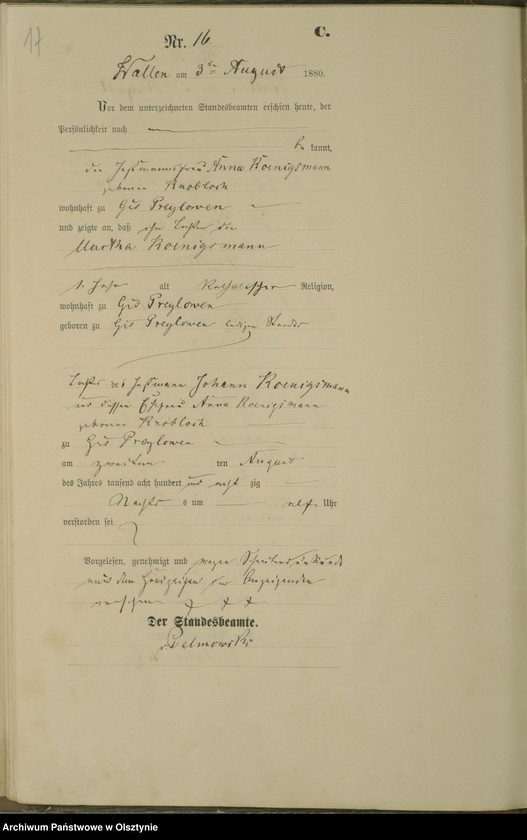 17
C.
Nr. 16
Wallen am 3ten August 1880.
Vor dem unterzeichneten Standesbeamten erschien heute, der
Persönlichkeit nach
be kannt,
die Instmannsfrau Anna Koenigsmann
geborene Knobloch
wohnhaft zu Gut Preylowen
und zeigte an, daß ihre Tochter die
Martha Koenigsmann
1. Jahr alt katholischer Religion,
wohnhaft zu Gut Preylowen
geboren zu Gut Preylowen ledigen Standes
Tochter des Instmann Johann Koenigsmann
und dessen Ehefrau Anna Koenigsmann
geborene Knobloch
zu Gut Preylowen
am zweiten ten August
des Jahres tausend acht hundert und acht zig
Nachts um elf Uhr
verstorben sei
Vorgelesen, genehmigt und wegen Schreibensunkunde
mit dem Handzeichen der Anzeigenden
versehen + + +
Der Standesbeamte.
Palmowski
Archiwum Państwowe w Olsztynie